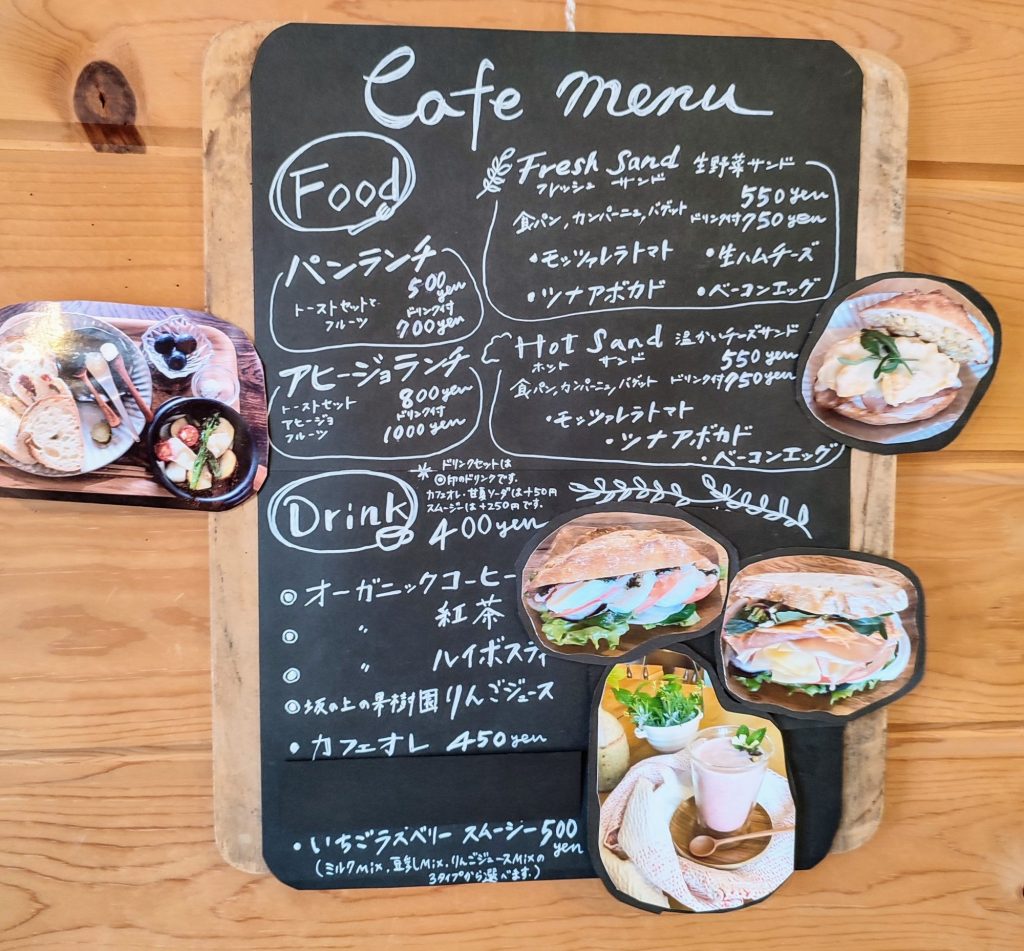 Cafe menu
Food
パンランチ
500 yen
トーストセットで
フルーツ
ドリンク付
700 yen
アヒージョランチ
800 yen
トーストセット
アヒージョ
フルーツ
ドリンク付
1000 yen
Fresh Sand 生野菜サンド
フレッシュ サンド
550 yen
食パン, カンパーニュ, バゲット ドリンク付 750 yen
・モッツァレラトマト ・生ハムチーズ
・ツナアボカド ・ベーコンエッグ
Hot Sand 温かいチーズサンド
ホット サンド
550 yen
食パン, カンパーニュ, バゲット ドリンク付 750 yen
・モッツァレラトマト
・ツナアボカド
・ベーコンエッグ
Drink
＊ドリンクセットは
◎印のドリンクです。
カフェオレ・甘夏ソーダは+50円
スムージーは+250円です。
400 yen
◎オーガニックコーヒー
◎ 〃 紅茶
◎ 〃 ルイボスティ
◎坂の上の果樹園りんごジュース
・カフェオレ 450 yen
・いちごラズベリー スムージー 500 yen
(ミルクMix, 豆乳Mix, りんごジュースMixの
3タイプから選べます。)